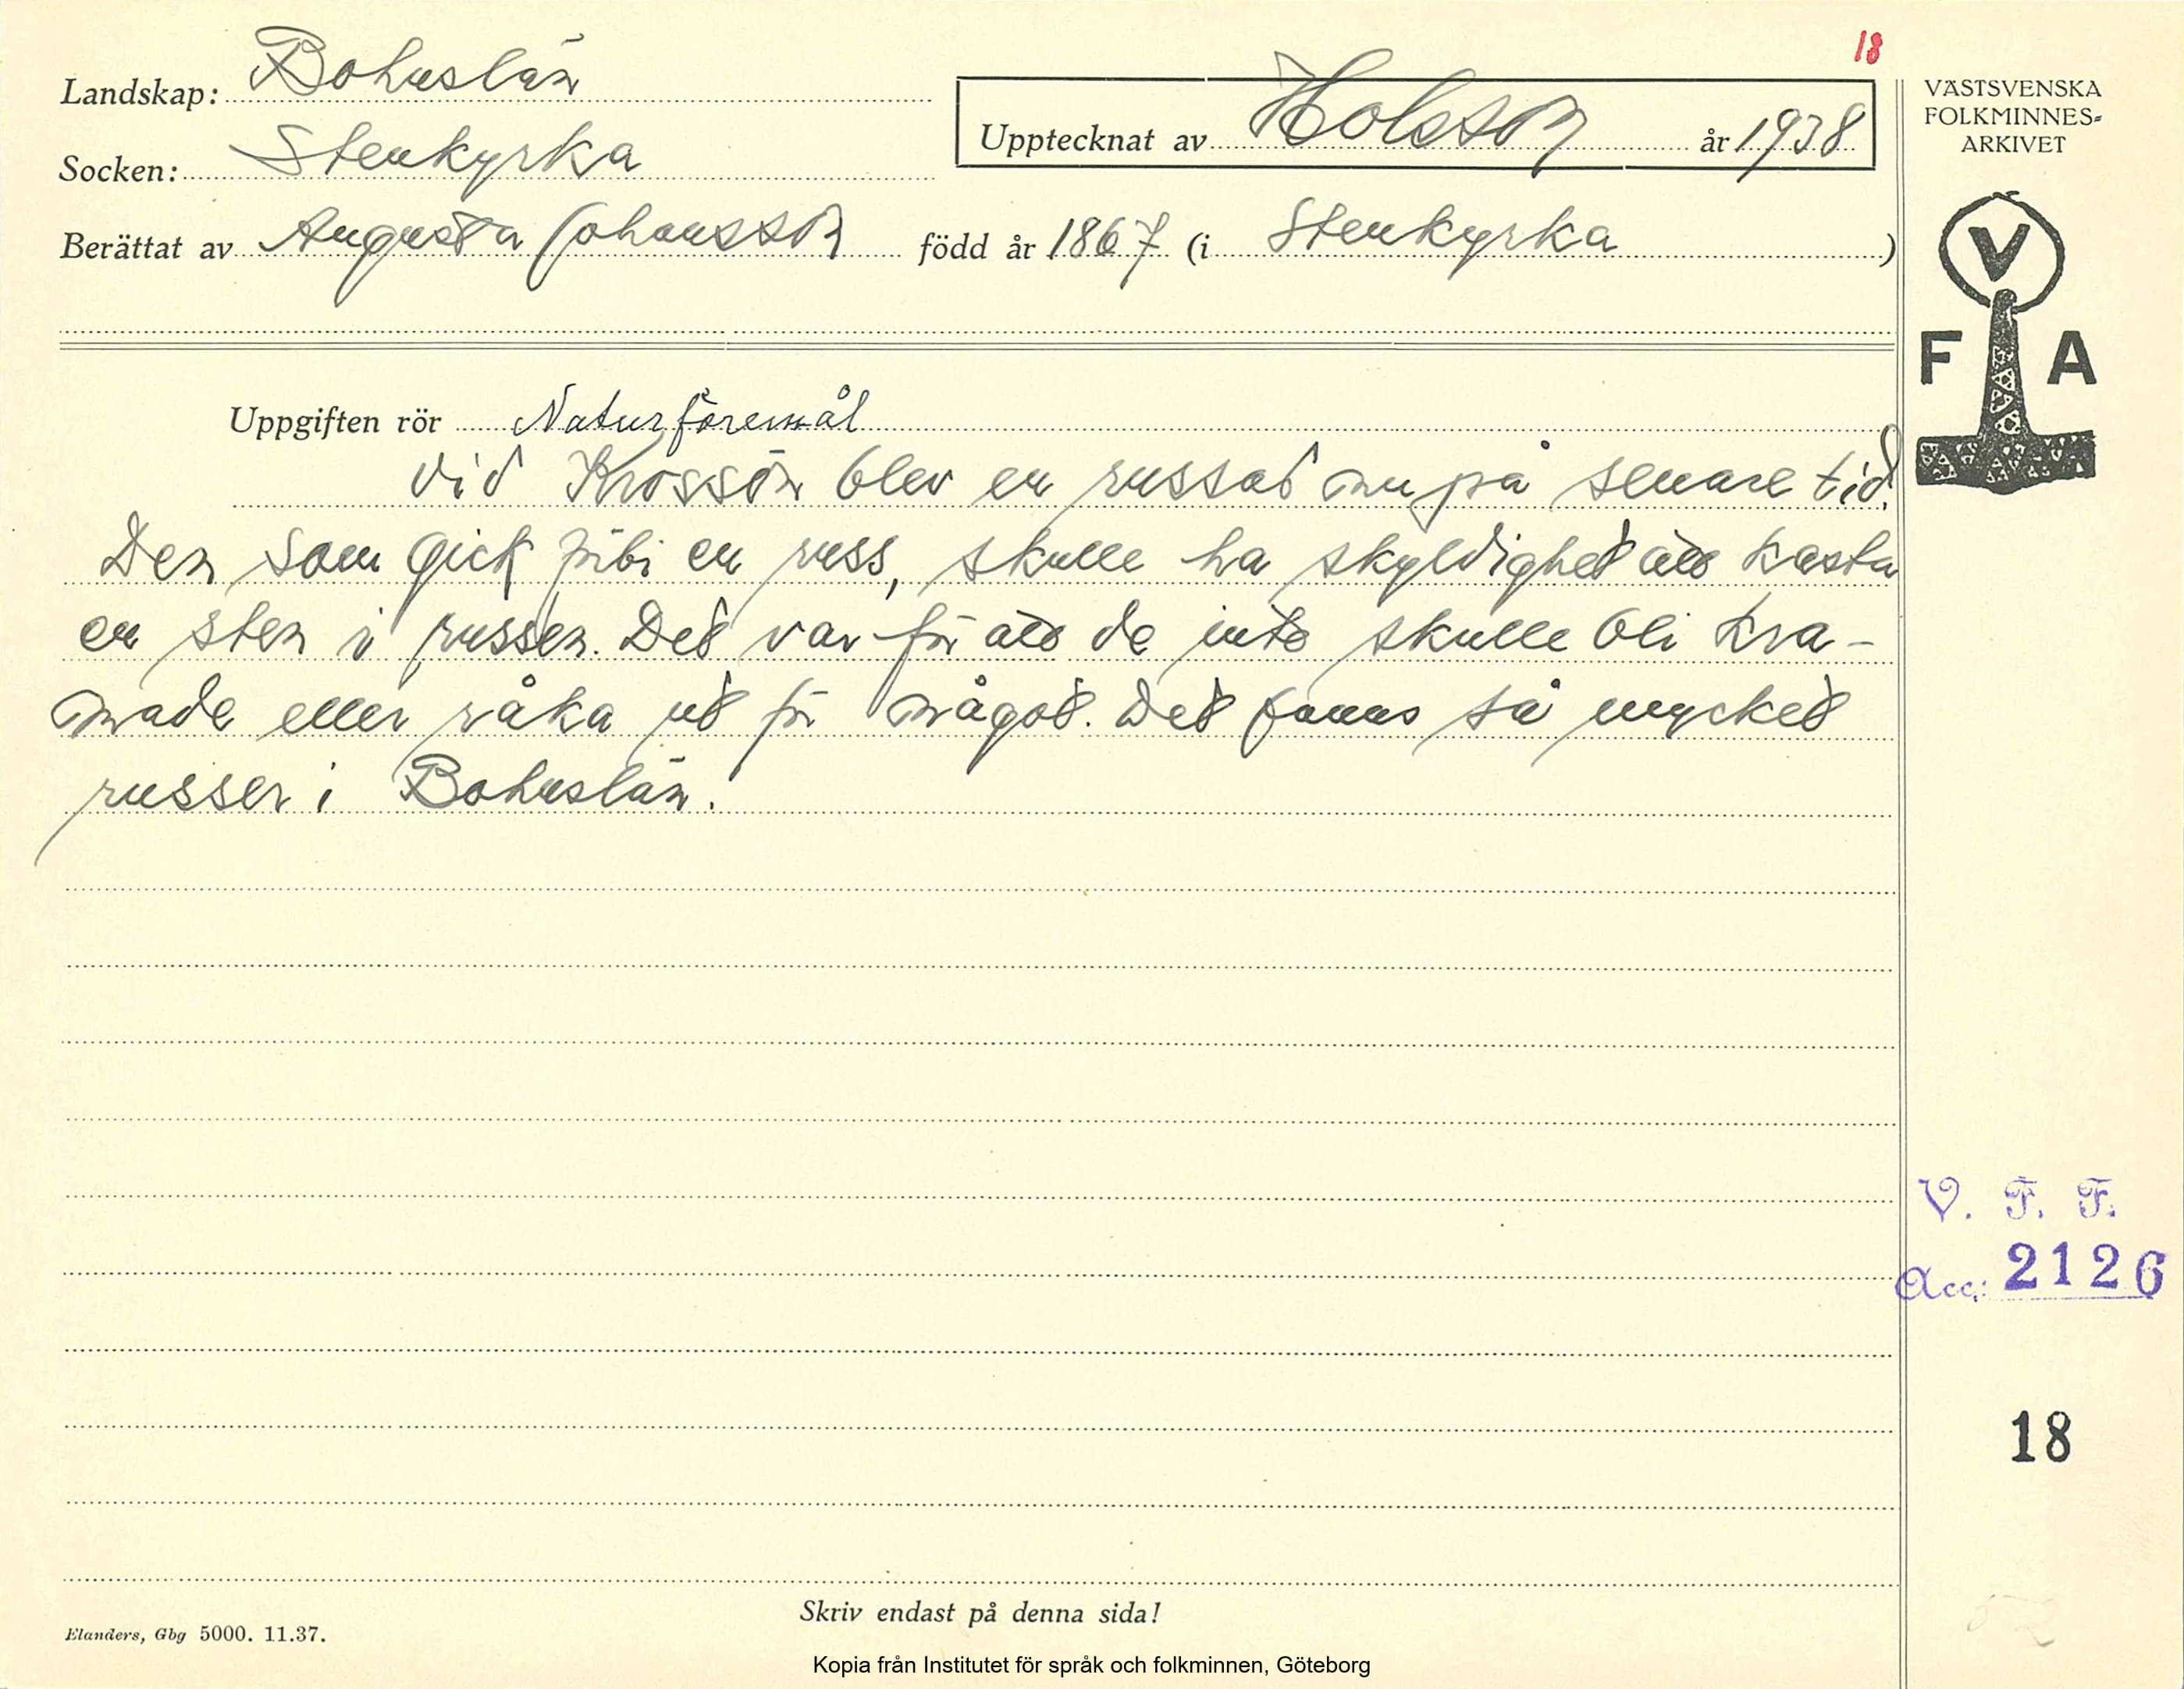 18
Landskap: Bohuslän
Socken: Stenkyrka
Upptecknat av Holsson år 1938
Berättat av Augusta Johansson född år 1867 (i Stenkyrka)
VÄSTSVENSKA
FOLKMINNES-
ARKIVET
V
F A
Uppgiften rör Naturföremål
Vid Krossön blev en russad nu på senare tid.
Den som gick förbi en russ, skulle ha skyldighet att kasta
en sten i russen. Det var för att de inte skulle bli kra-
made eller råka ut för något. Det fanns så mycket
russer i Bohuslän.
V. F. F.
Acc: 2126
18
Skriv endast på denna sida!
Elanders, Gbg 5000. 11.37.
52
Kopia från Institutet för språk och folkminnen, Göteborg